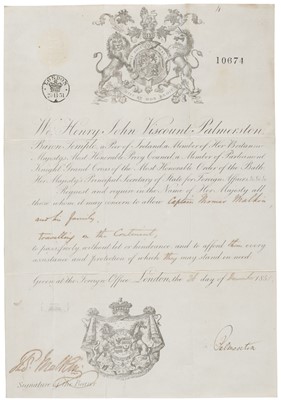 10674
LONDON
We Henry John Viscount Palmerston
Baron Temple, a Peer of Ireland, a Member of Her Britannic
Majesty's Most Honorable Privy Council, a Member of Parliament
Knight Grand Cross of the Most Honorable Order of the Bath
Her Majesty's Principal Secretary of State for Foreign Affairs &c &c &c
Request and require in the Name of Her Majesty, all
those whom it may concern to allow Captain Thomas
and his family,
travelling on the Continent,
to pass freely without let or hindrance, and to afford them every
assistance and protection of which they may stand in need.
Given at the Foreign Office, London, the day of November
Palmerston
Signature of the Bearer